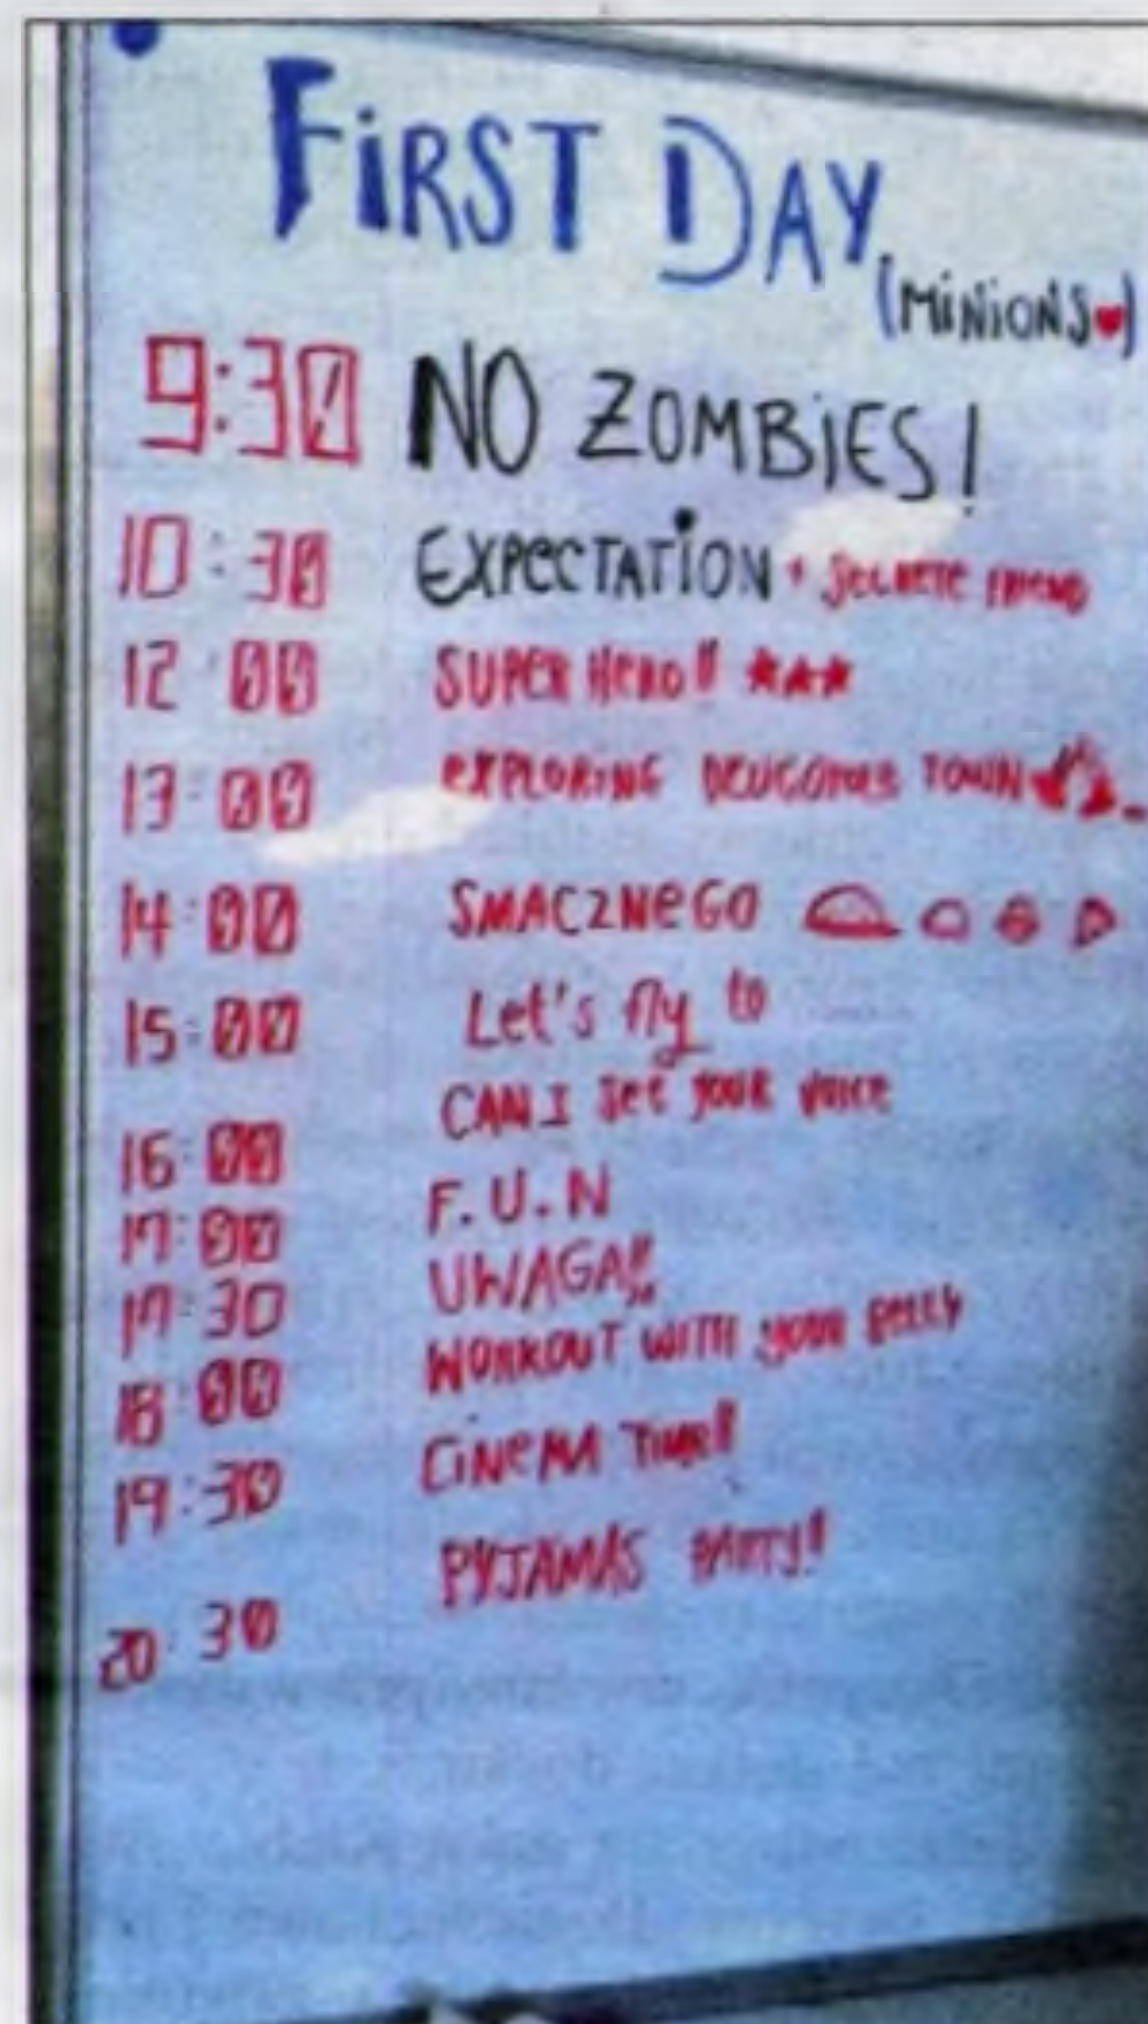 FiRST DAY
(MiNiONS)
9:30 NO ZOMBiES!
10:30 EXPECTATiON + SECRETE FRIEND
12:00 SUPER HERO!! ★★★
13:00 EXPLORING TOWN
14:00 SMACZNEGO
15:00 Let's fly to ......
CAN I SEE YOUR VOICE
16:00
F.U.N
17:00
UWAGA!!
17:30
WORKOUT WITH YOUR BELLY
18:00
CiNEMA TIME!!
19:30
PYJAMAS PARTY!!
20:30